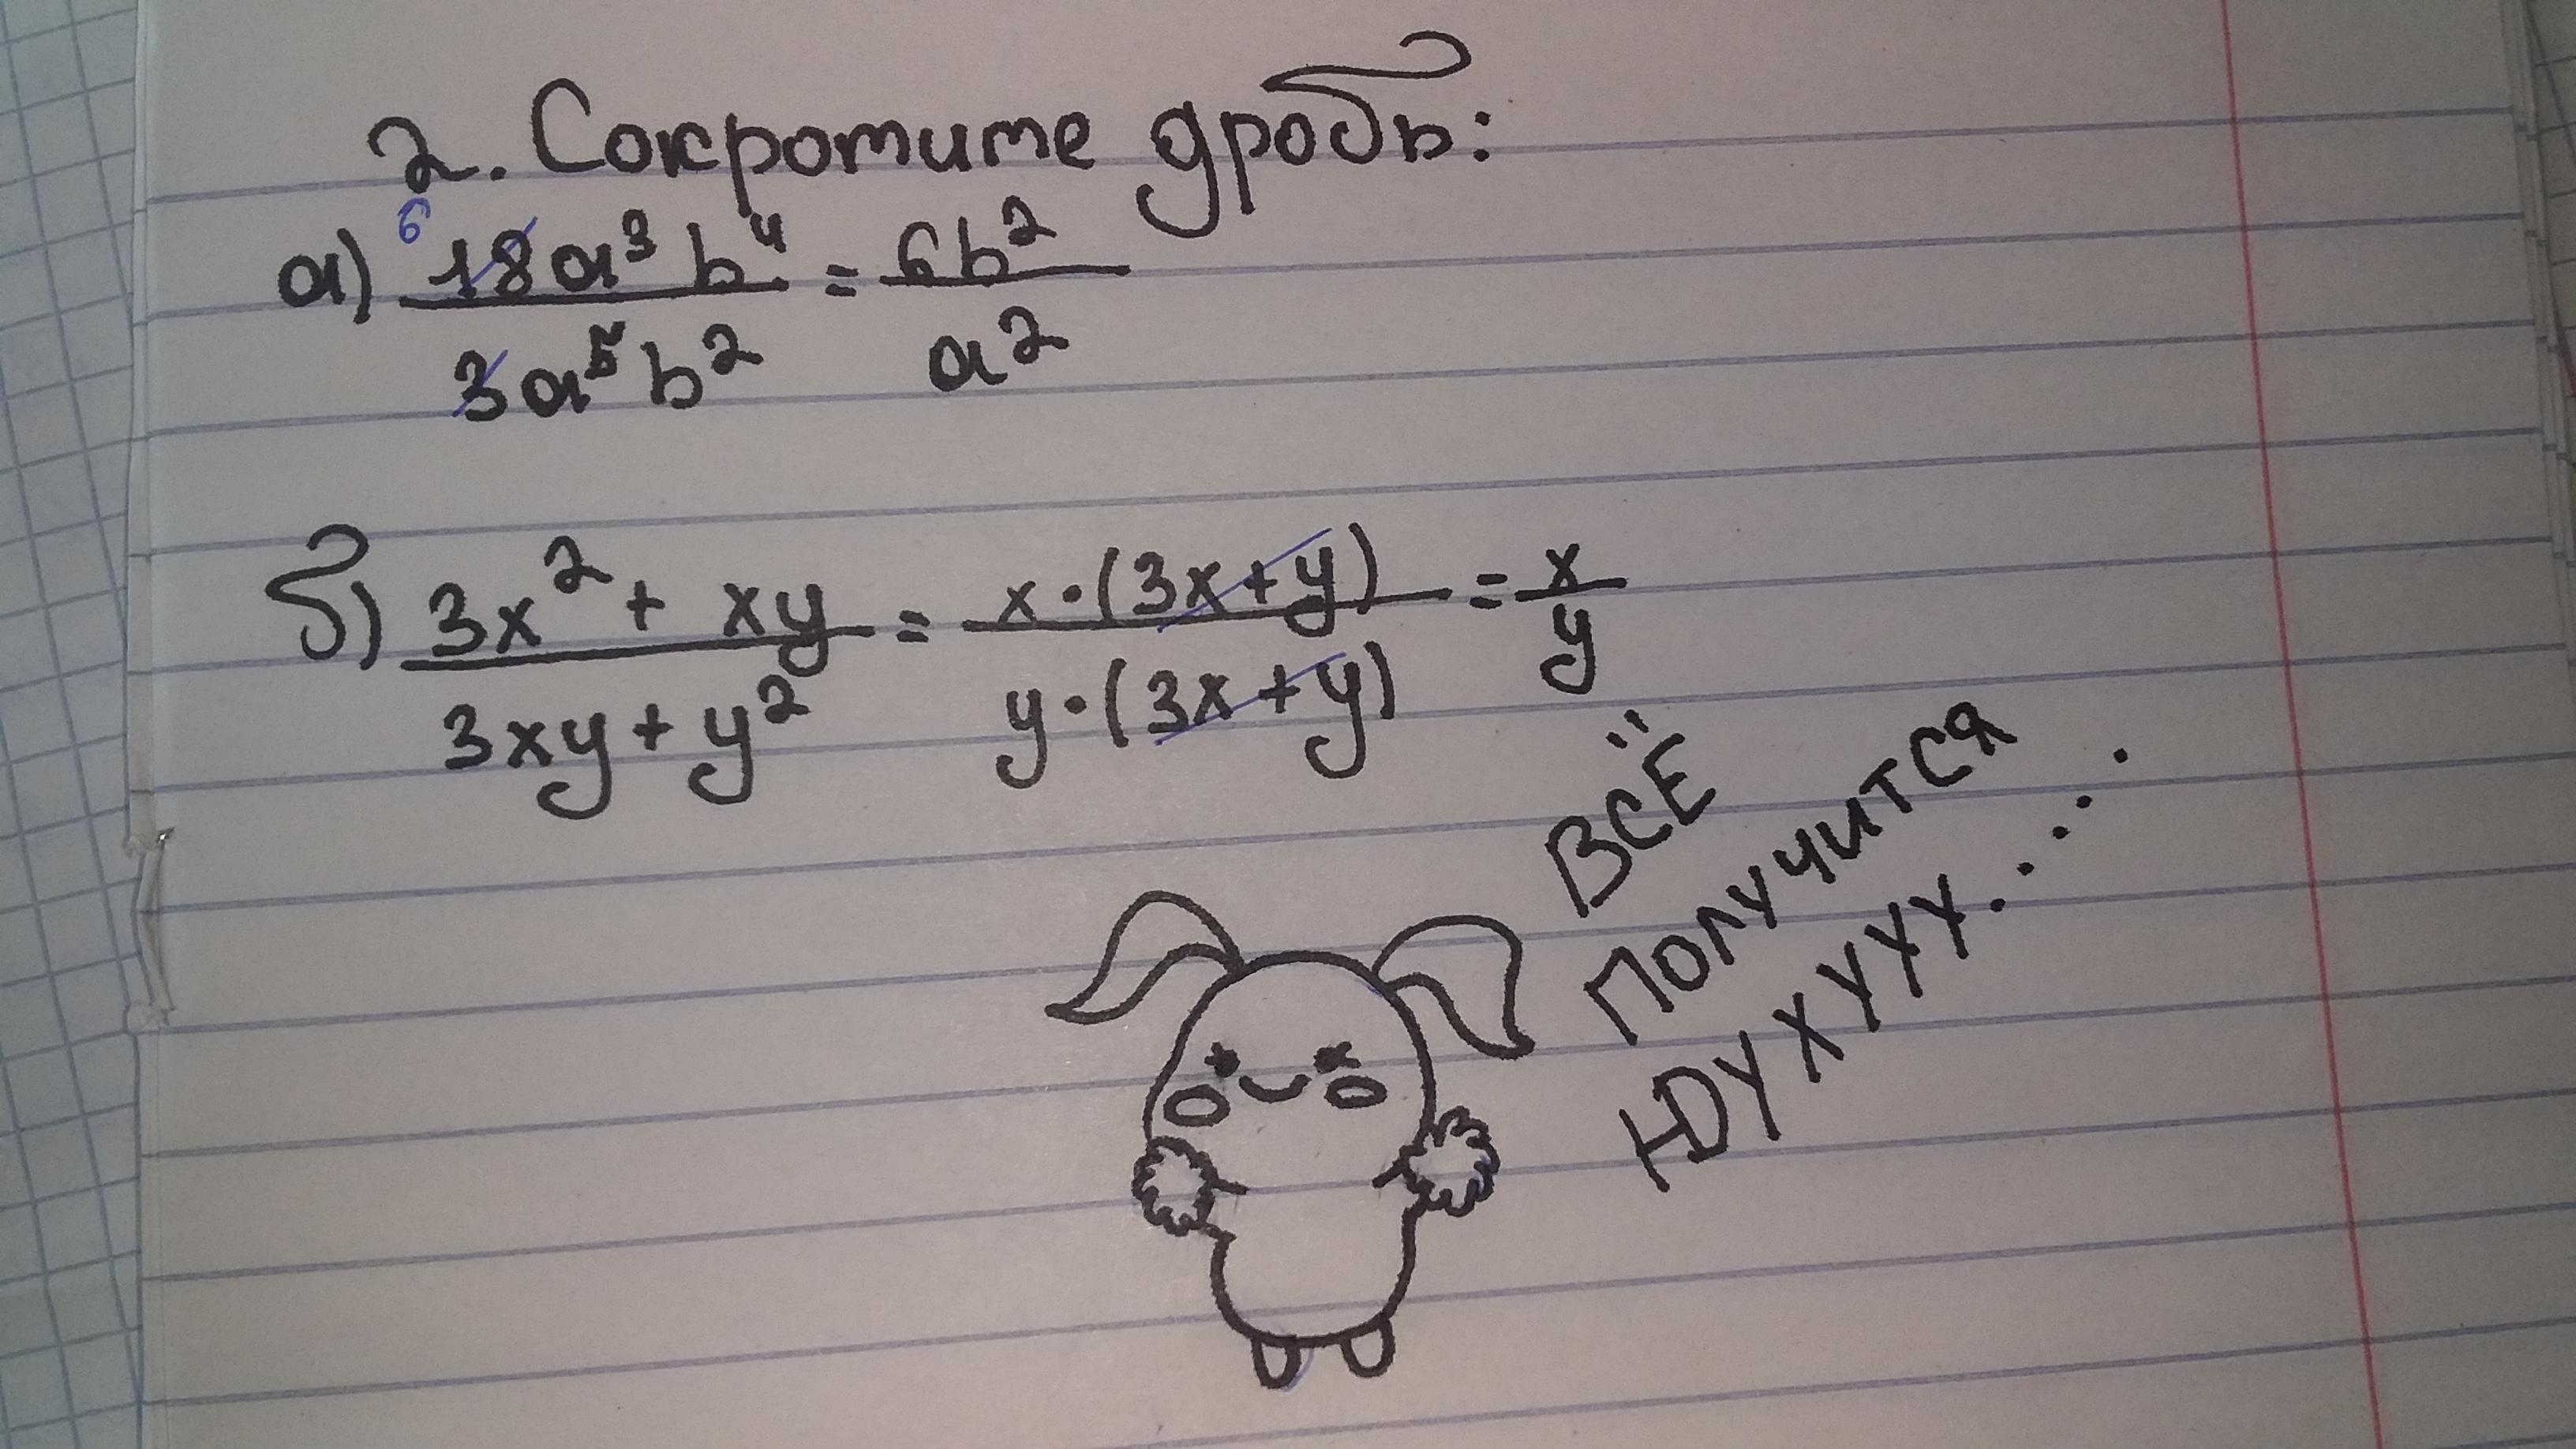 2. Сократите дробь:
а) ⁶ 18a³b⁴ / 3a⁵b² = 6b² / a²
б) 3x² + xy / 3xy + y² = x·(3x+y) / y·(3x+y) = x / y
ВСЁ
ПОЛУЧИТСЯ
ЮУХУУУ......